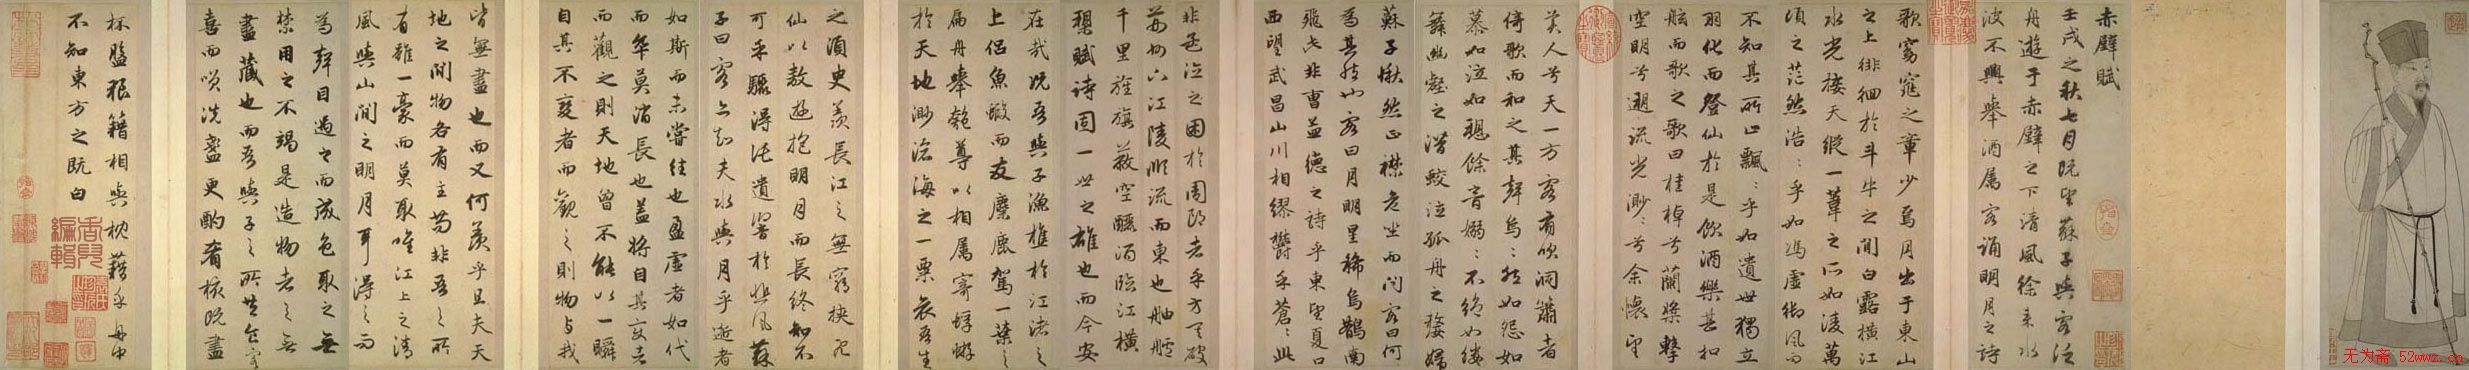 赤壁賦
壬戌之秋七月既望蘇子與客泛
舟遊于赤壁之下清風徐來水
波不興舉酒屬客誦明月之詩
歌窈窕之章少焉月出于東山
之上徘徊於斗牛之間白露橫江
水光接天縱一葦之所如凌萬
頃之茫然浩〻乎如馮虛御風而
不知其所止飄〻乎如遺世獨立
羽化而登仙於是飲酒樂甚扣
舷而歌之歌曰桂棹兮蘭槳擊
空明兮遡流光渺〻兮余懷望
美人兮天一方客有吹洞簫者
倚歌而和之其聲烏〻然如怨如
慕如泣如訴餘音嫋〻不絕如縷
舞幽壑之潛蛟泣孤舟之嫠婦
蘇子愀然正襟危坐而問客曰何
為其然也客曰月明星稀烏鵲南
飛此非曹孟德之詩乎東望夏口
西望武昌山川相繆鬱乎蒼〻此
非孟德之困於周郎者乎方其破
荊州下江陵順流而東也舳艫
千里旌旗蔽空釃酒臨江橫
槊賦詩固一世之雄也而今安
在哉況吾與子漁樵於江渚之
上侶魚蝦而友麋鹿駕一葉之
扁舟舉匏尊以相屬寄蜉蝣
於天地渺滄海之一粟哀吾生
之須臾羨長江之無窮挾飛
仙以遨遊抱明月而長終知不
可乎驟得託遺響於悲風蘇
子曰客亦知夫水與月乎逝者
如斯而未嘗往也盈虛者如代
而卒莫消長也蓋將自其變者
而觀之則天地曾不能以一瞬
自其不變者而觀之則物與我
皆無盡也而又何羨乎且夫天
地之間物各有主苟非吾之所
有雖一豪而莫取唯江上之清
風與山間之明月耳得之而
為聲目遇之而成色取之無
禁用之不竭是造物者之無
盡藏也而吾與子之所共食客
喜而笑洗盞更酌肴核既盡
杯盤狼籍相與枕藉乎舟中
不知東方之既白
无为斋 52wwz.cn